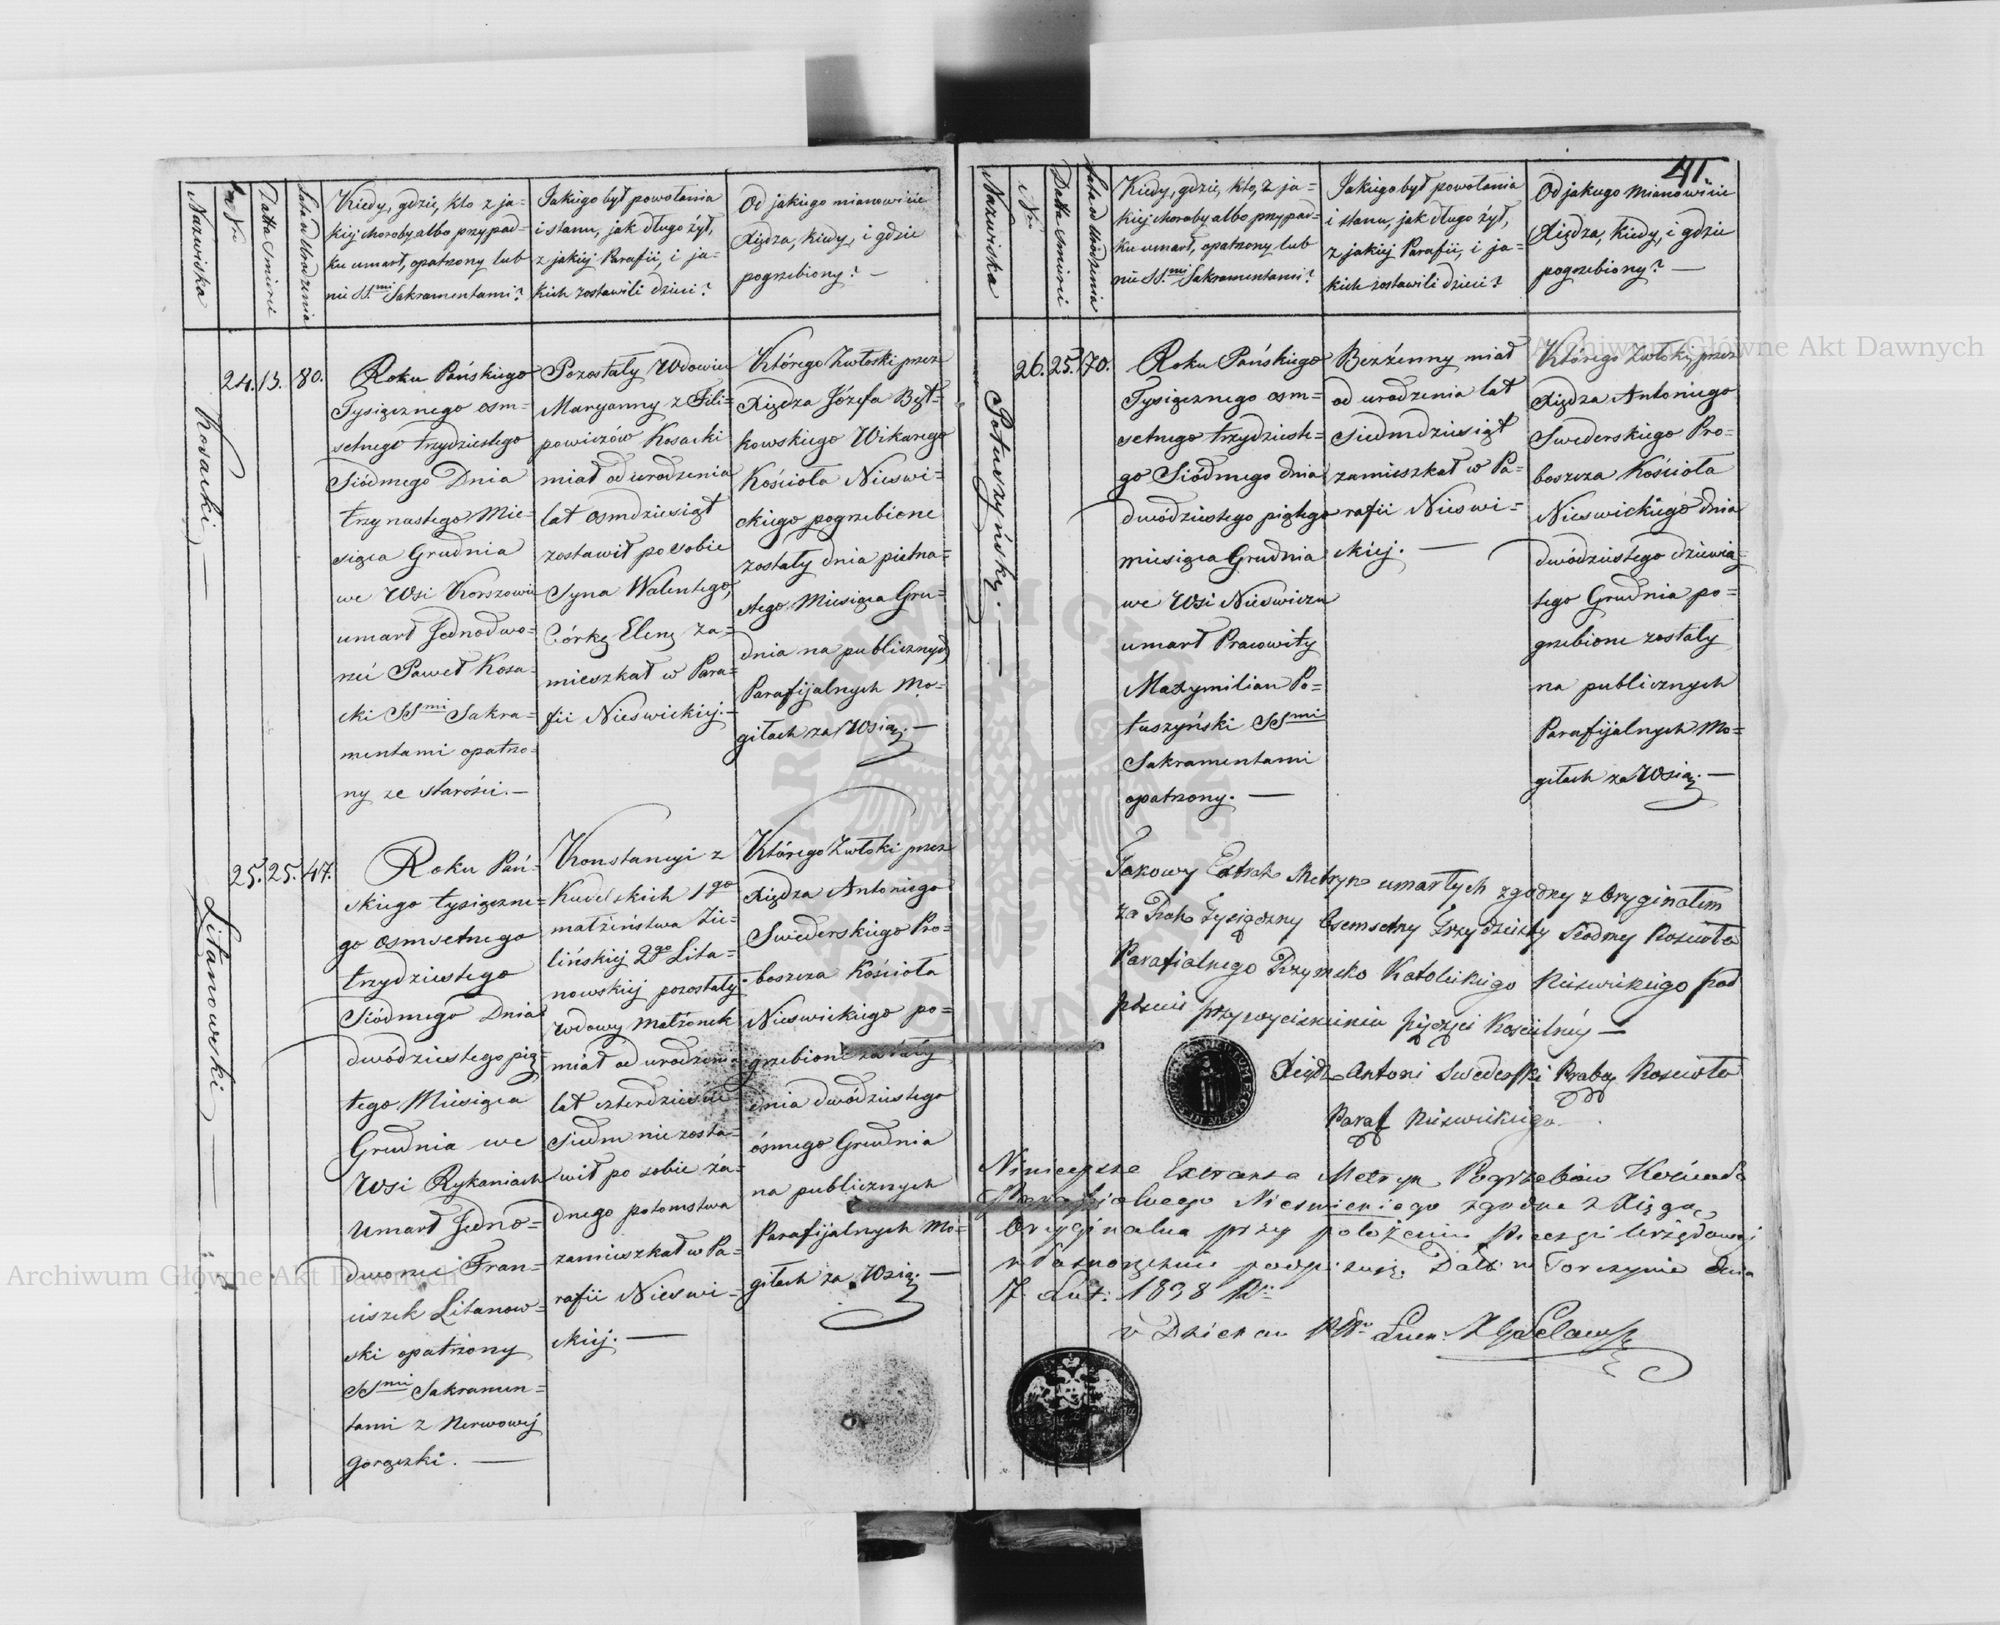 Nazwiska
Nr
Datta Smierci
Lata od Urodzenia
Kiedy, gdzie, kto z ja=
kiej choroby albo przypad=
ku umarł, opatrzony lub
nie SS.mi Sakramentami?
Jakiego był powołania
i stanu, jak długo żył,
z jakiej Parafii, i ja=
kich zostawili dzieci?
Od jakiego mianowicie
Xiędza, kiedy, i gdzie
pogrzebiony? —
Kosacki —
24.
13.
80.
Roku Pańskiego
Tysiącznego osm=
setnego trzydziestego
Siódmego Dnia
trzynastego Mie=
siąca Grudnia
we Wsi Korszowie
umarł Jednodwo=
rzec Paweł Kosa=
cki SSmi Sakra=
mentami opatrzo=
ny ze starości. —
Pozostały Wdowiec
Maryanny z Fili=
powiczów Kosacki
miał od urodzenia
lat osmdziesiąt
zostawił po sobie
Syna Walentego,
Córkę Elenę za=
mieszkał w Para=
fii Nieswickiej. —
Którego Zwłoki przez
Xiędza Józefa Bęt=
kowskiego Wikarego
Kościoła Nieswi=
ckiego pogrzebione
zostały dnia pietna=
stego Miesiąca Gru=
dnia na publicznych
Parafijalnych Mo=
giłach za Wsią. —
Litanowski —
25.
25.
47.
Roku Pań=
skiego tysiączne=
go osmsetnego
trzydziestego
Siódmego Dnia
dwódziestego pią=
tego Miesiąca
Grudnia we
Wsi Rykaniach
Umarł Jedno=
dworzec Fran=
ciszek Litanow=
ski opatrzony
SSmi Sakramen=
tami z Nerwowej
gorączki. —
Konstancyi z
Kudelskich 1go
małżeństwa Zie=
lińskiej 2go Lita=
nowskiej pozostały
wdowy Małżonek
miał od urodzenia
lat czterdzieście
siedm nie zosta=
wił po sobie ża=
dnego potomstwa
zamieszkał w Pa=
rafii Nieswi=
ckiej. —
Którego Zwłoki przez
Xiędza Antoniego
Swederskiego Pro=
boszcza Kościoła
Nieswickiego po=
grzebione zostały
dnia dwódziestego
ósmego Grudnia
na publicznych
Parafijalnych Mo=
giłach za Wsią. —
41.
Nazwiska
Nr.
Datta Smierci
Lata od Urodzenia
Kiedy, gdzie, kto, z ja=
kiej choroby albo przypad=
ku umarł, opatrzony lub
nie SS.mi Sakramentami?
Jakiego był powołania
i stanu, jak długo żył,
z jakiej Parafii, i ja=
kich zostawili dzieci?
Od jakiego mianowicie
Xiędza, kiedy, i gdzie
pogrzebiony? —
Potuszyńsky. —
26.
25.
70.
Roku Pańskiego
Tysiącznego osm=
setnego trzydzieste=
go Siódmego dnia
dwódziestego piątego
miesiąca Grudnia
we Wsi Nieswiczu
umarł Pracowity
Maxymilian Po=
tuszyński SSmi
Sakramentami
opatrzony. —
Bezżenny miał
od urodzenia lat
siedmdziesiąt
zamieszkał w Pa=
rafii Nieswi=
ckiej. —
Którego Zwłoki przez
Xiędza Antoniego
Swederskiego Pro=
boszcza Kościoła
Nieswickiego dnia
dwódziestego dziewią=
tego Grudnia po=
grzebione zostały
na publicznych
Parafijalnych Mo=
giłach za Wsią. —
Takowy Extrakt Metryk umarłych zgodny z Oryginałem
za Rok Tysiączny Osemsetny Trzydziesty Siodmy Koscioła
Parafialnego Rzymsko Katolickiego Nieswickiego pod
pisuie przy wycisnieniu pięczęci Kościelnéy —
Xiądz Antoni Swederski Prob. Kosciołá
Paraf Nieswickiego
Ninieysze Extrakta Metryk Pogrzebów Kościoła
Parafialnego Nieswickiego zgodne z Xięgą
Oryginalną przy położeniu Pieczęci Urzędowey
własnoręcznie podpisuję. Datt w Torczynie dnia
7 Lut: 1838 Ru
Archiwum Główne Akt Dawnych
Archiwum Główne Akt Dawnych
ARCHIWUM GŁÓWNE AKT DAWNYCH